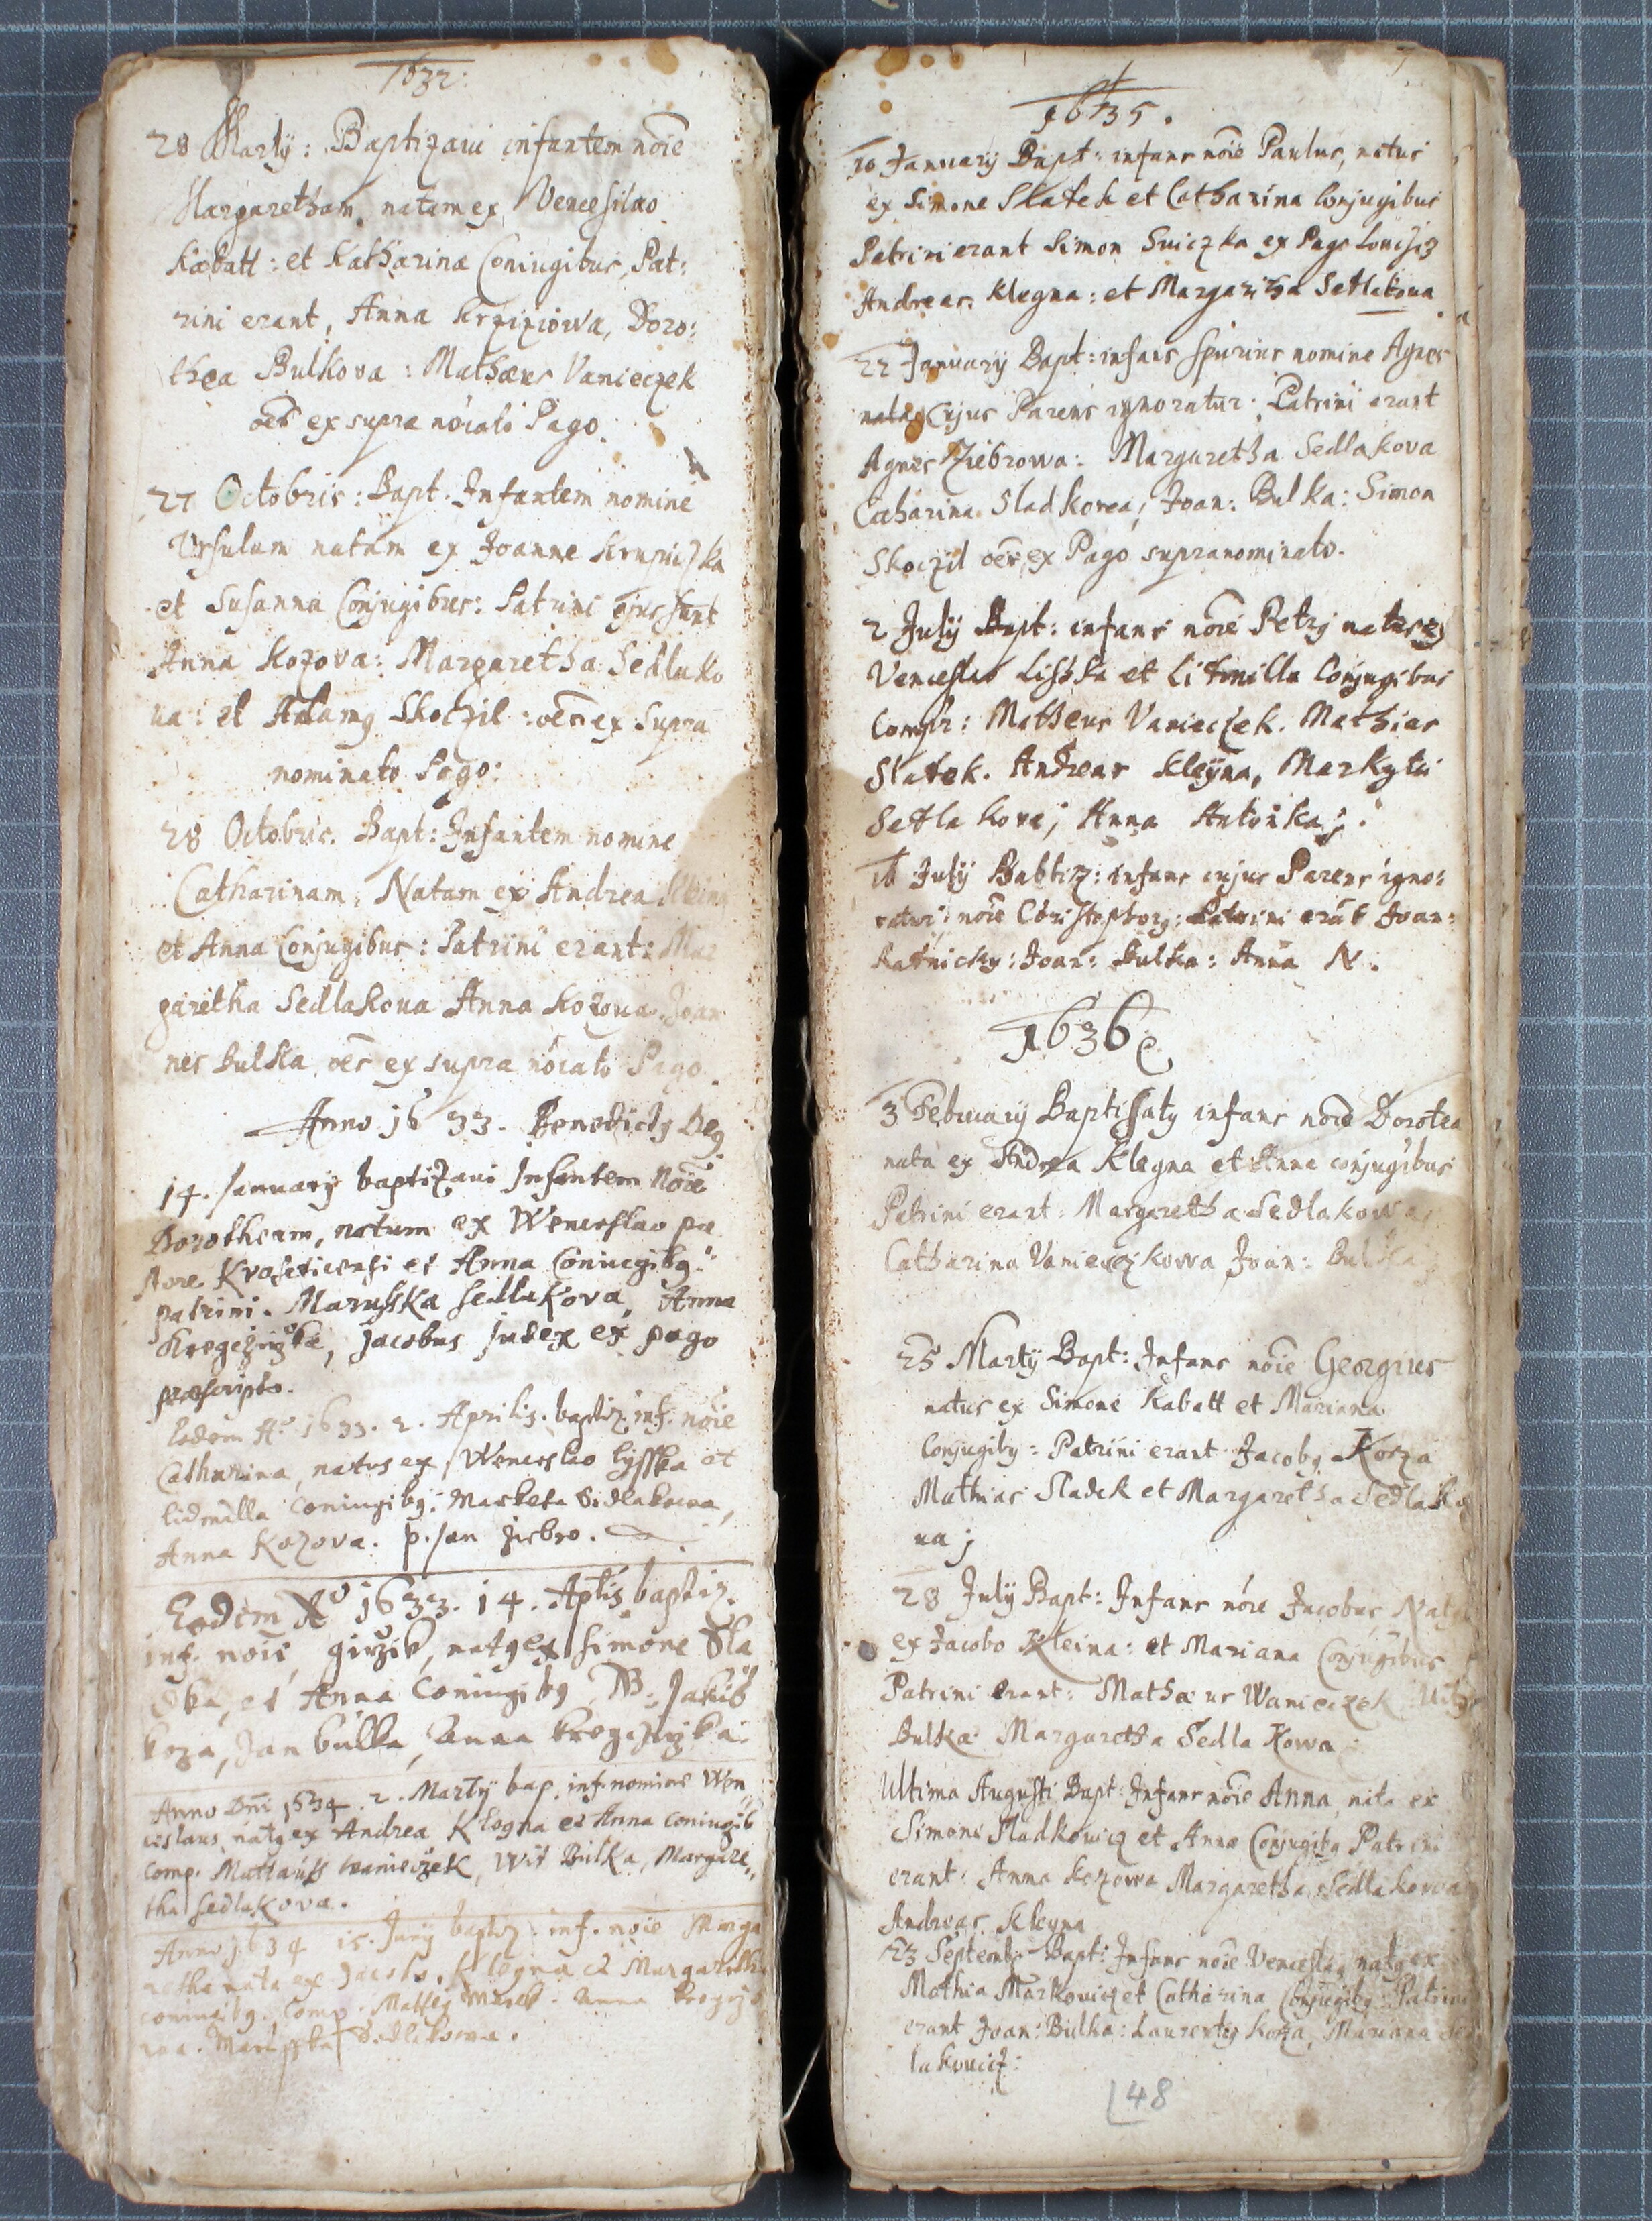 1632:
28 Martÿ: Baptizavi infantem nõie
Margaretham natam ex Venceslao
Kabatt: et Katharina Coniugibus, Pat:
rini erant, Anna Krziziowa, Doro:
thea Bulkova: Mathæus Vanieczek
oẽs ex supra nõiato Pago.
27 Octobris: Bapt. Infantem nomine
Ursulam natam ex Joanne Krupiczka
et Susanna Conjugibus: Patrini ejus sunt
Anna Kozova: Margaretha Sedlako
va: et Adamg Skoczil: oẽs ex supra
nominato Pago:
28 Octobris. Bapt: Infantem nomine
Catharinam, Natam ex Andrea Kleina
et Anna Conjugibus: Patrini erant: Mar
garetha Sedlakova Anna Kozova Joan
nes Bulka oẽs ex supra nõiato Pago.
Anno 1633. Benedictg Deg
14. January baptizavi Infantem Nõie
Dorotheam, natam ex Wenceslao pa
store et Anna Coniugibg:
patrini. Marusska Sedlakova, Anna
Jacobus Judex ex pago
præscripto.
Eodem Aº 1633. 2. Aprilis. baptiz. inf. nõie
Catharina, natus ex Wenceslao lysska et
lidmilla Coniugibg: Marketa Sedlakowa,
Anna Kozova. p. Jan ziebro.
Eodem Aº 1633. 14. Aplis baptiz.
inf. nõie, girzik, natg ex Simone Sla
dka, et Anna Coniugibg, Jakub
koza, Jan bulka, Anna
Anno Dñi 1634. 2. Martÿ bap. inf. nomine Wen„
ceslaus, natg ex Andrea Klegna et Anna coniugib
Comp. Mattauss wanieczek, Wit Bulka, Margare„
tha Sedlakova.
Anno 1634 15. Juny baptiz: inf. nõie Marga
retha nata ex Jacobo. Klegna et Margaretha
coniugibg. Comp. Matteg Anna
Marusska Sedlakowa.
1635.
10 January Bapt: infans nõie Paulus, natus
ex Simone Sladek et Catharina Conjugibus
Patrini erant Simon Sviczka ex Pago
Andreas Klegna: et Margaritha Sedlakova
22 January Bapt: infans spurius nomine Agnes
nata Cujus Parens ignoratur: Patrini erant
Agnes Ziebrowa: Margaretha Sedlakova
Catharina Sladkova; Joan: Bulka: Simon
Skoczil oẽs ex Pago supranominato.
2 July Bapt: infans nõie Petrg natus ex
Venceslao Lisska et Litmilla Conjugibus
Comp: Matheus Vanieczek. Mathias
Sladek. Andreas Kleÿna, Markyta
Sedlakova; Anna
16 July Babtiz: infans cujus Parens igno:
ratur; nõie Christophorg: Patrini erãt Joan:
Ratnicky: Joan: Bulka: Anna N.
1636
3 February Baptisatg infans nõie Dorotea
nata ex Andrea Klegna et Anna conjugibus
Patrini erant Margaretha Sedlakowa
Catharina Vanieczkowa Joan: Bulka
25 Martÿ Bapt: Infans nõie Georgius
natus ex Simone Kabatt et Mariana
Conjugibg: Patrini erant Jacobg Koza
Mathias Sladek et Margaretha Sedlako
va;
28 July Bapt: Infans nõie Jacobus, Natg
ex Jacobo Kleina: et Mariana Conjugibus
Patrini erant: Mathæus Wanieczek
Bulka Margaretha Sedlakowa
Ultima Augusti Bapt: Infans nõie Anna nata ex
Simone Sladkowicz et Anna Conjugibg Patrini
erant: Anna Kozowa Margaretha Sedlakowa
Andreas Kleyna
23 Septemb: Bapt: Infans nõie Venceslag natg ex
Mathia Markowicz et Catharina Conjugibg Patrini
erant Joan: Bulka: Laurentg Koza, Mariana Sed
lakovicz:
48